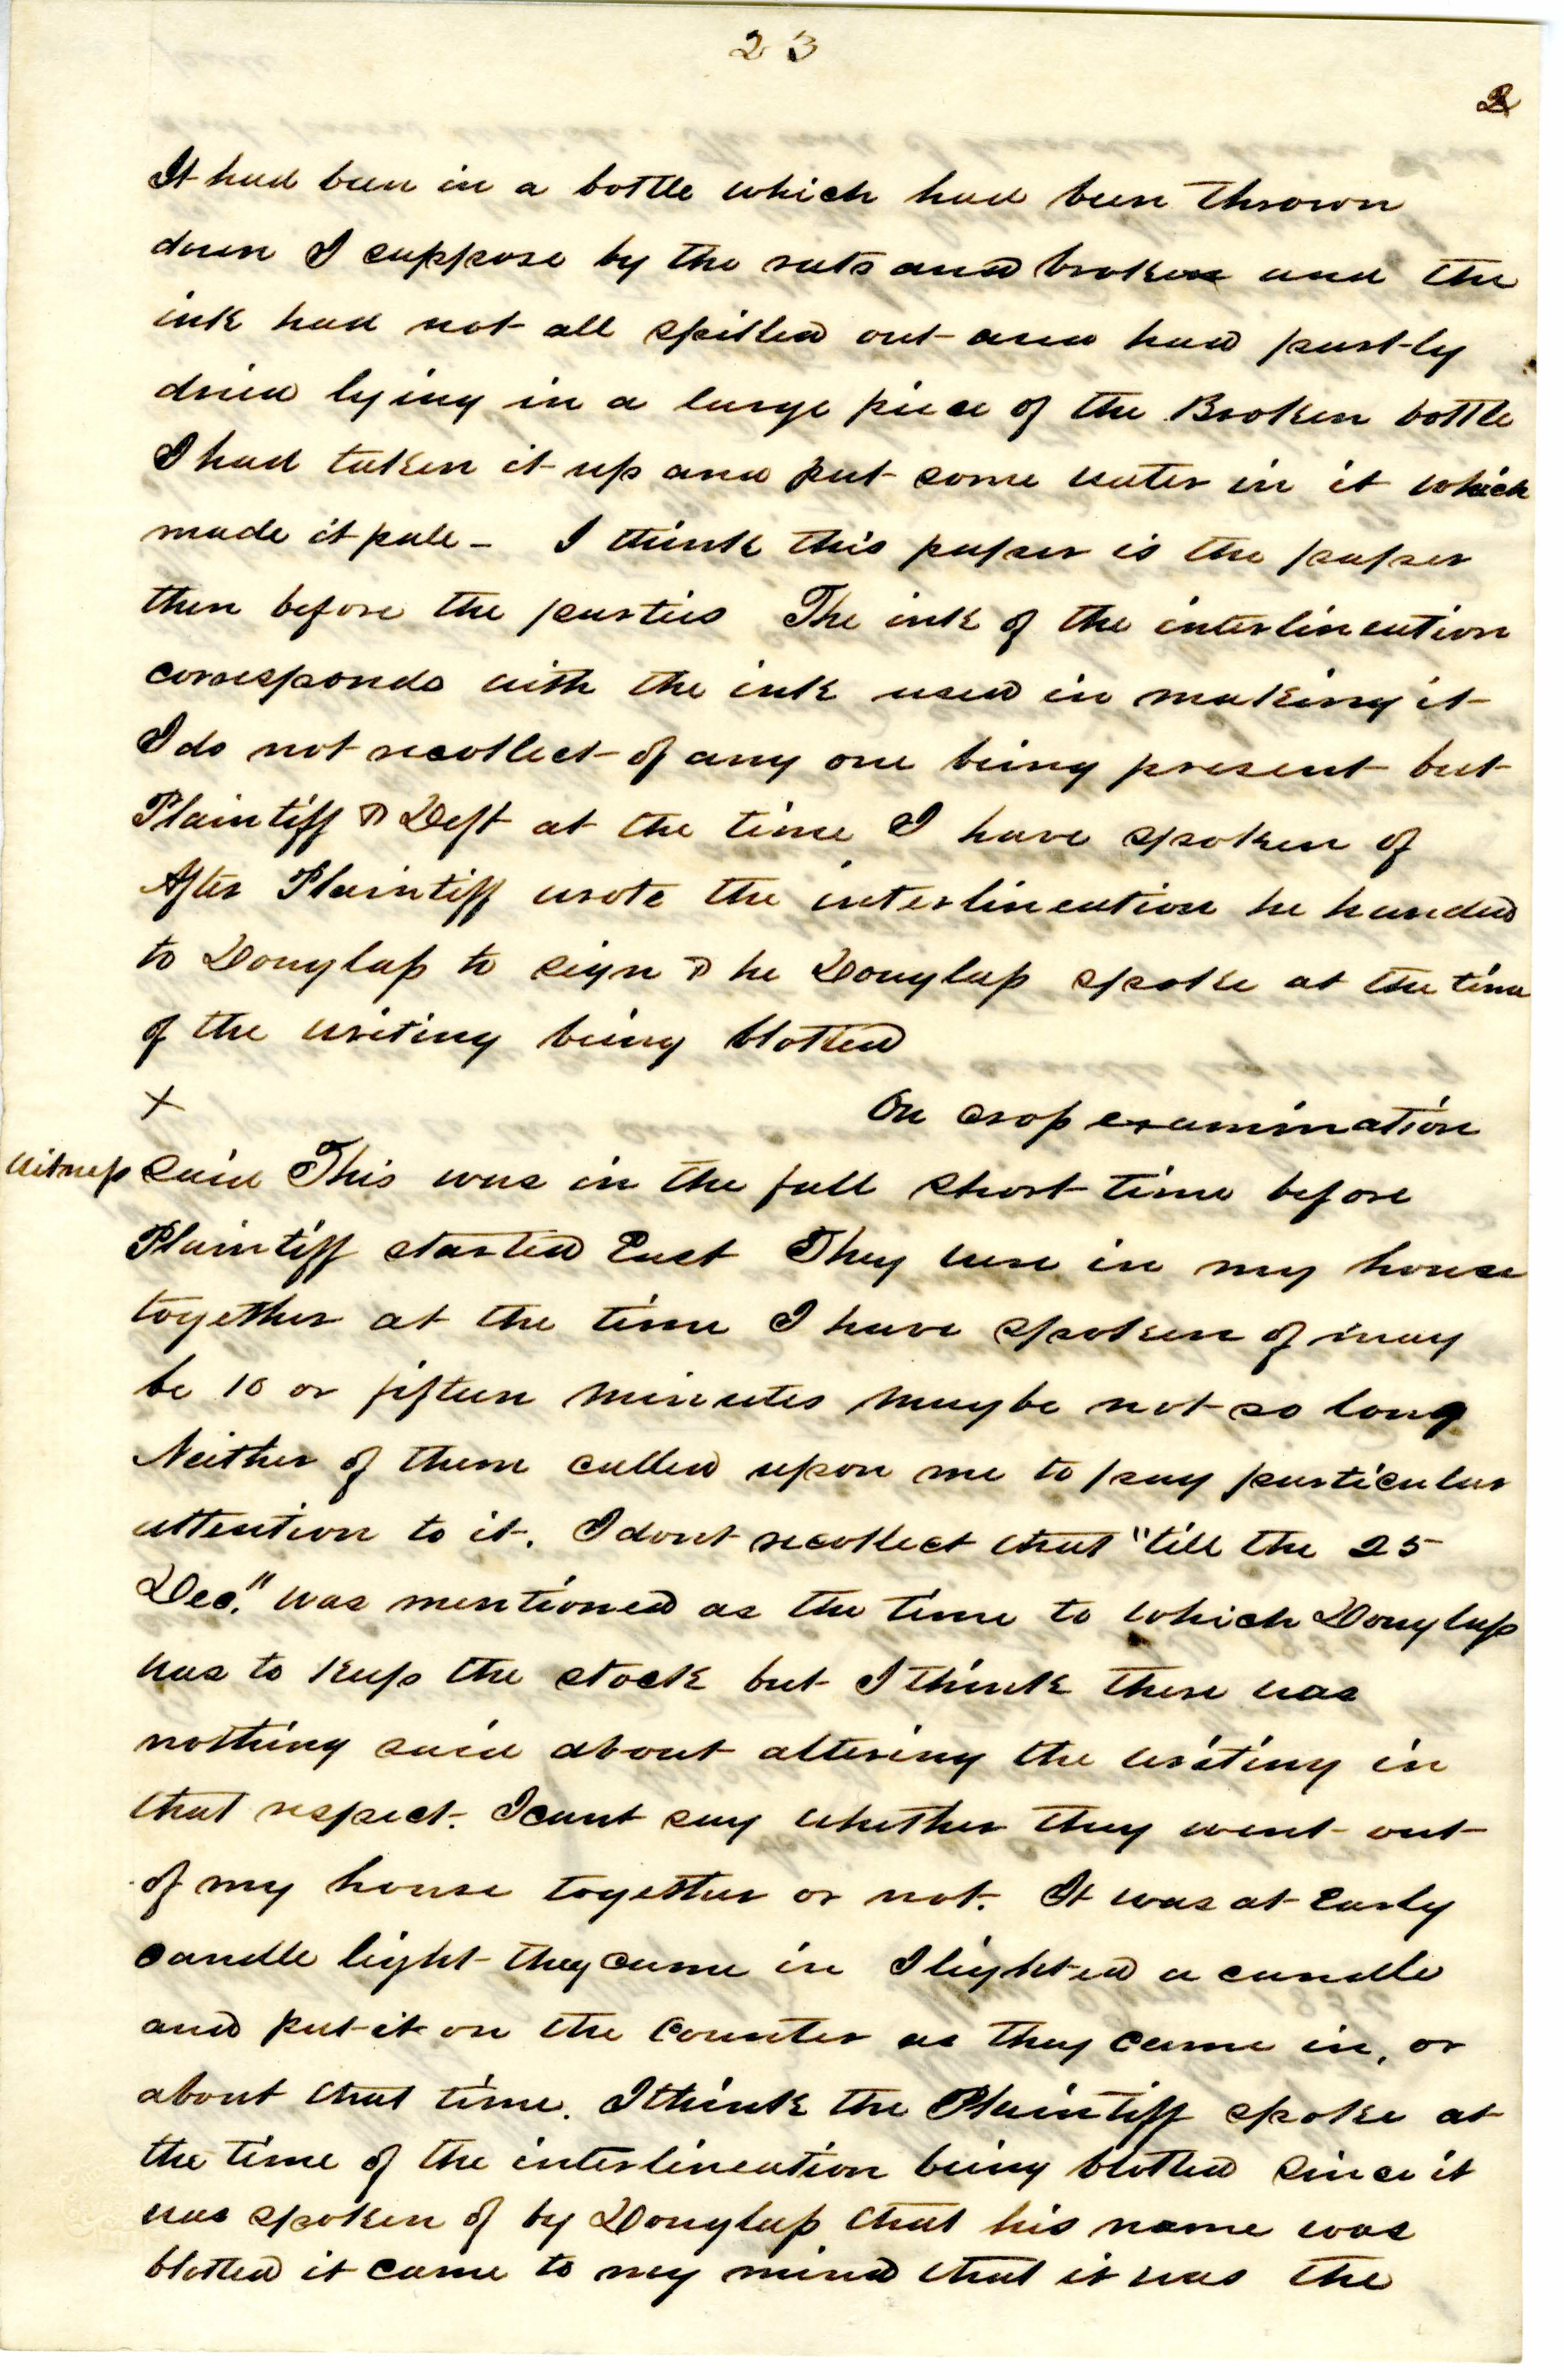 23
2
It had been in a bottle which had been thrown
down I suppose by the rats and broken and the
ink had not all spilled out and had partly
dried lying in a large piece of the Broken bottle
I had taken it up and put some water in it which
made it pale - I think this paper is the paper
then before the parties The ink of the interlineation
corresponds with the ink used in making it
I do not recollect of any one being present but
Plaintiff & Deft at the time I have spoken of
After Plaintiff wrote the interlineation he handed
to Douglass to sign & he Douglass spoke at the time
of the writing being blotted
X On cross examination
Witness said This was in the fall short time before
Plaintiff started East They were in my house
together at the time I have spoken of may
be 10 or fifteen minutes maybe not so long
Neither of them called upon me to pay particular
attention to it. I dont recollect that "till the 25
Dec." was mentioned as the time to which Douglass
was to keep the stock but I think there was
nothing said about altering the writing in
that respect. I cant say whether they went out
of my house together or not. It was at Early
candle light they came in I lighted a candle
and put it on the Counter as they came in, or
about that time. I think the Plaintiff spoke at
the time of the interlineation being blotted since it
was spoken of by Douglass that his name was
blotted it came to my mind that it was the